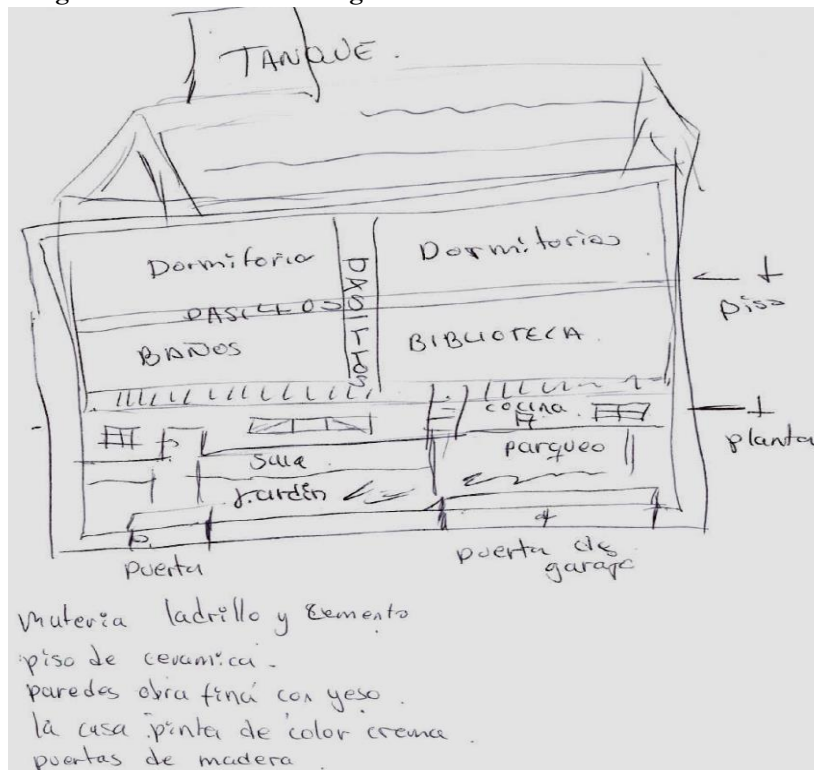 TANQUE.
Dormitorio
Dormitorios
PASILLOS
PASILLOS
BAÑOS
BIBLIOTECA
piso
cocina
planta
Sala
parqueo
Jardin
puerta
puerta de garage
materia ladrillo y cemento
piso de ceramica.
paredes obra fina con yeso.
la casa pinta de color crema.
puertas de madera.